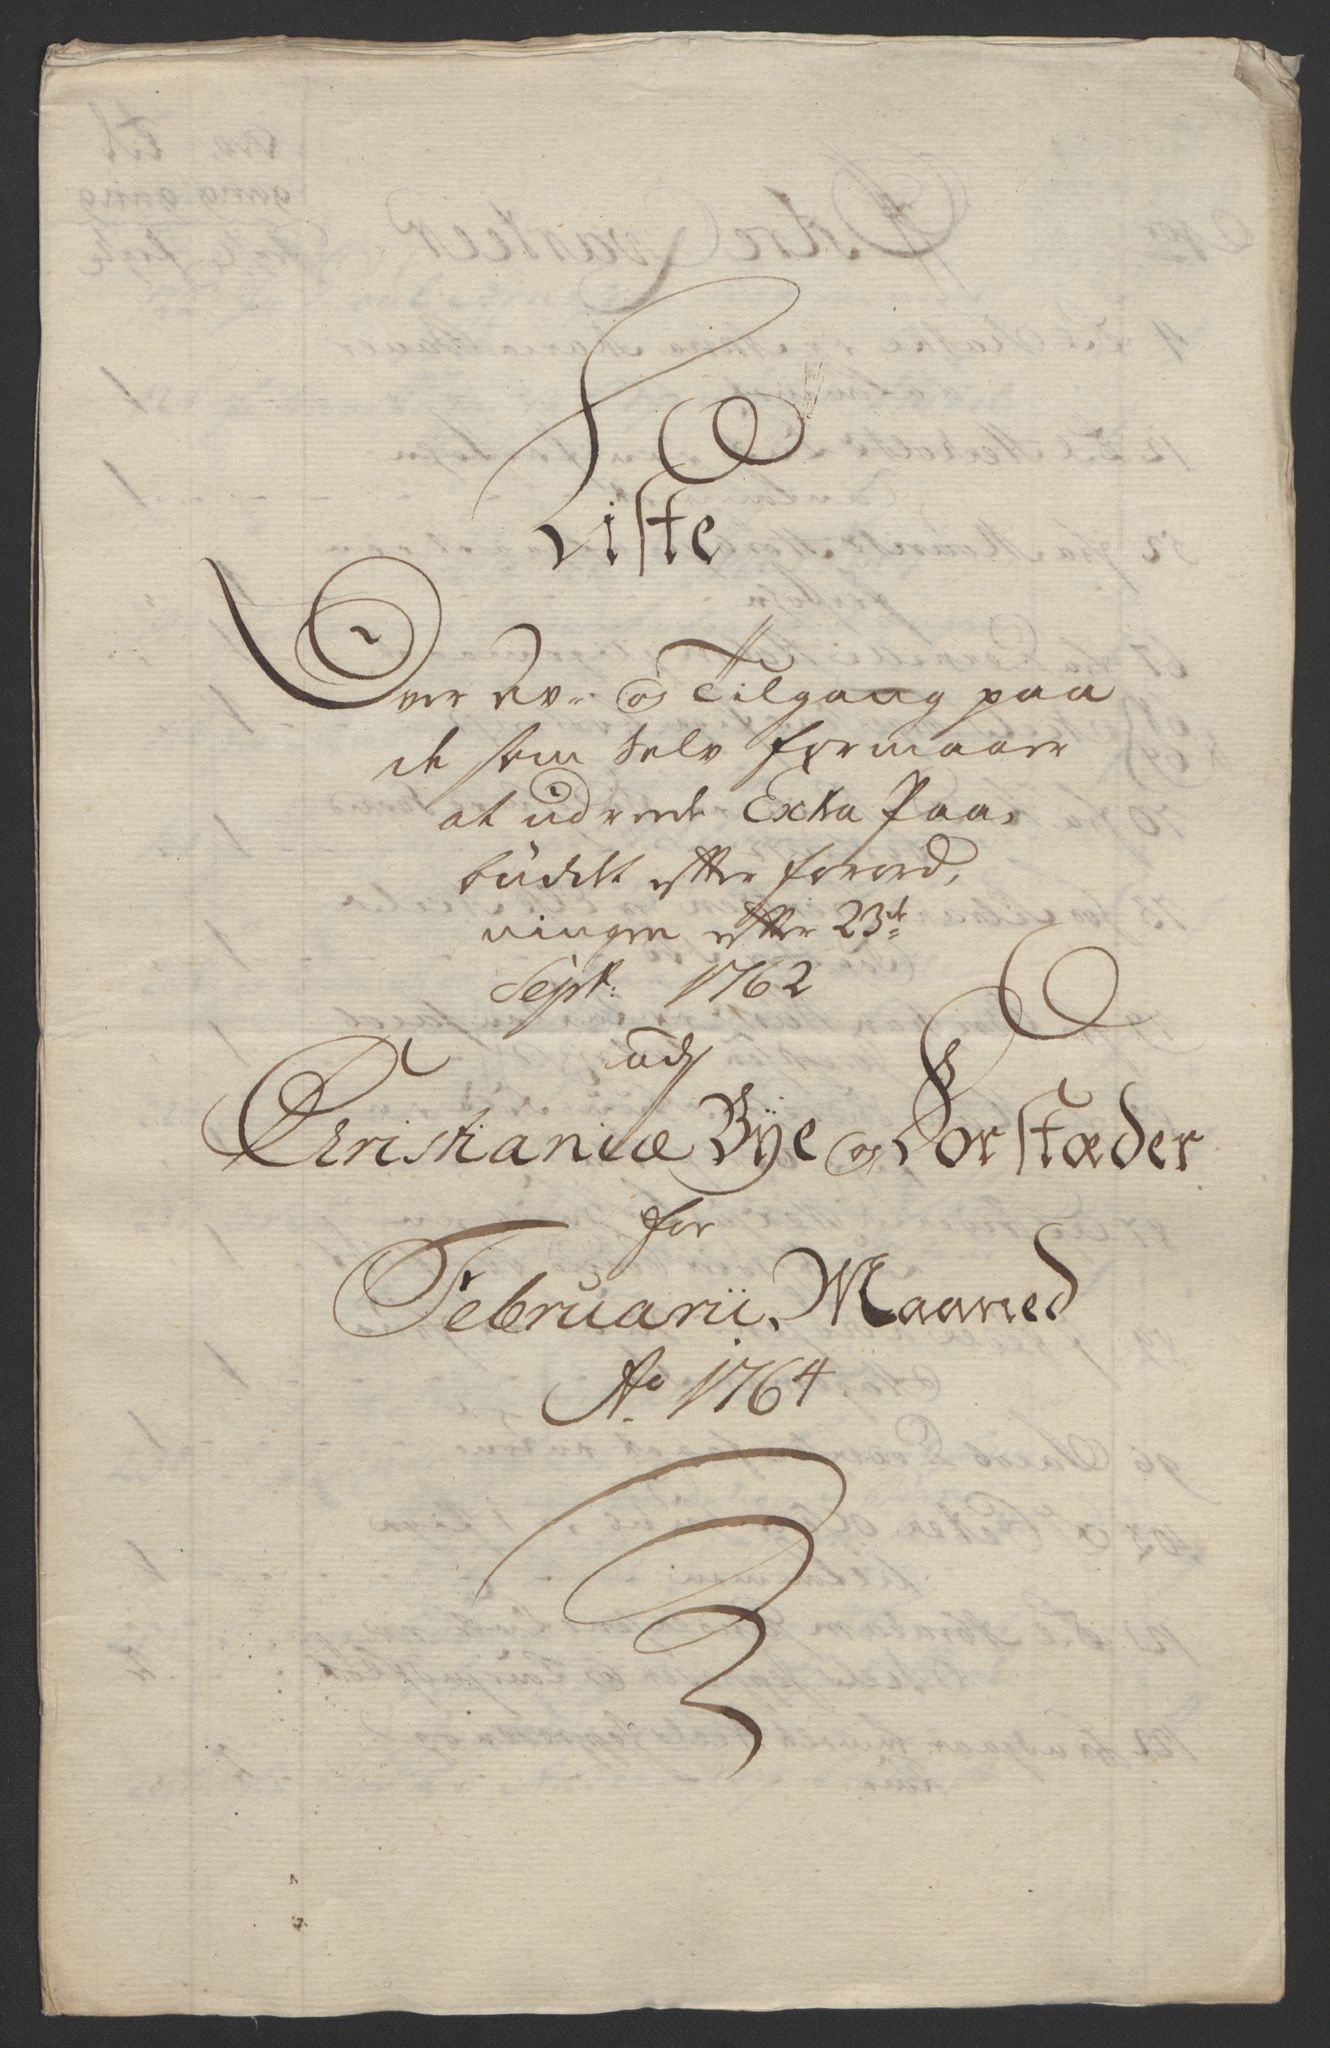 Liste
Over Av- og Tilgang paa
de som selv formaaer
at udrede Extra Paa,
budet efter Forord,
ningen efter 23de
Sept: 1762
udj
Christianiæ Bÿe og Forstæder
for
Februarii Maaned
Ao 1764